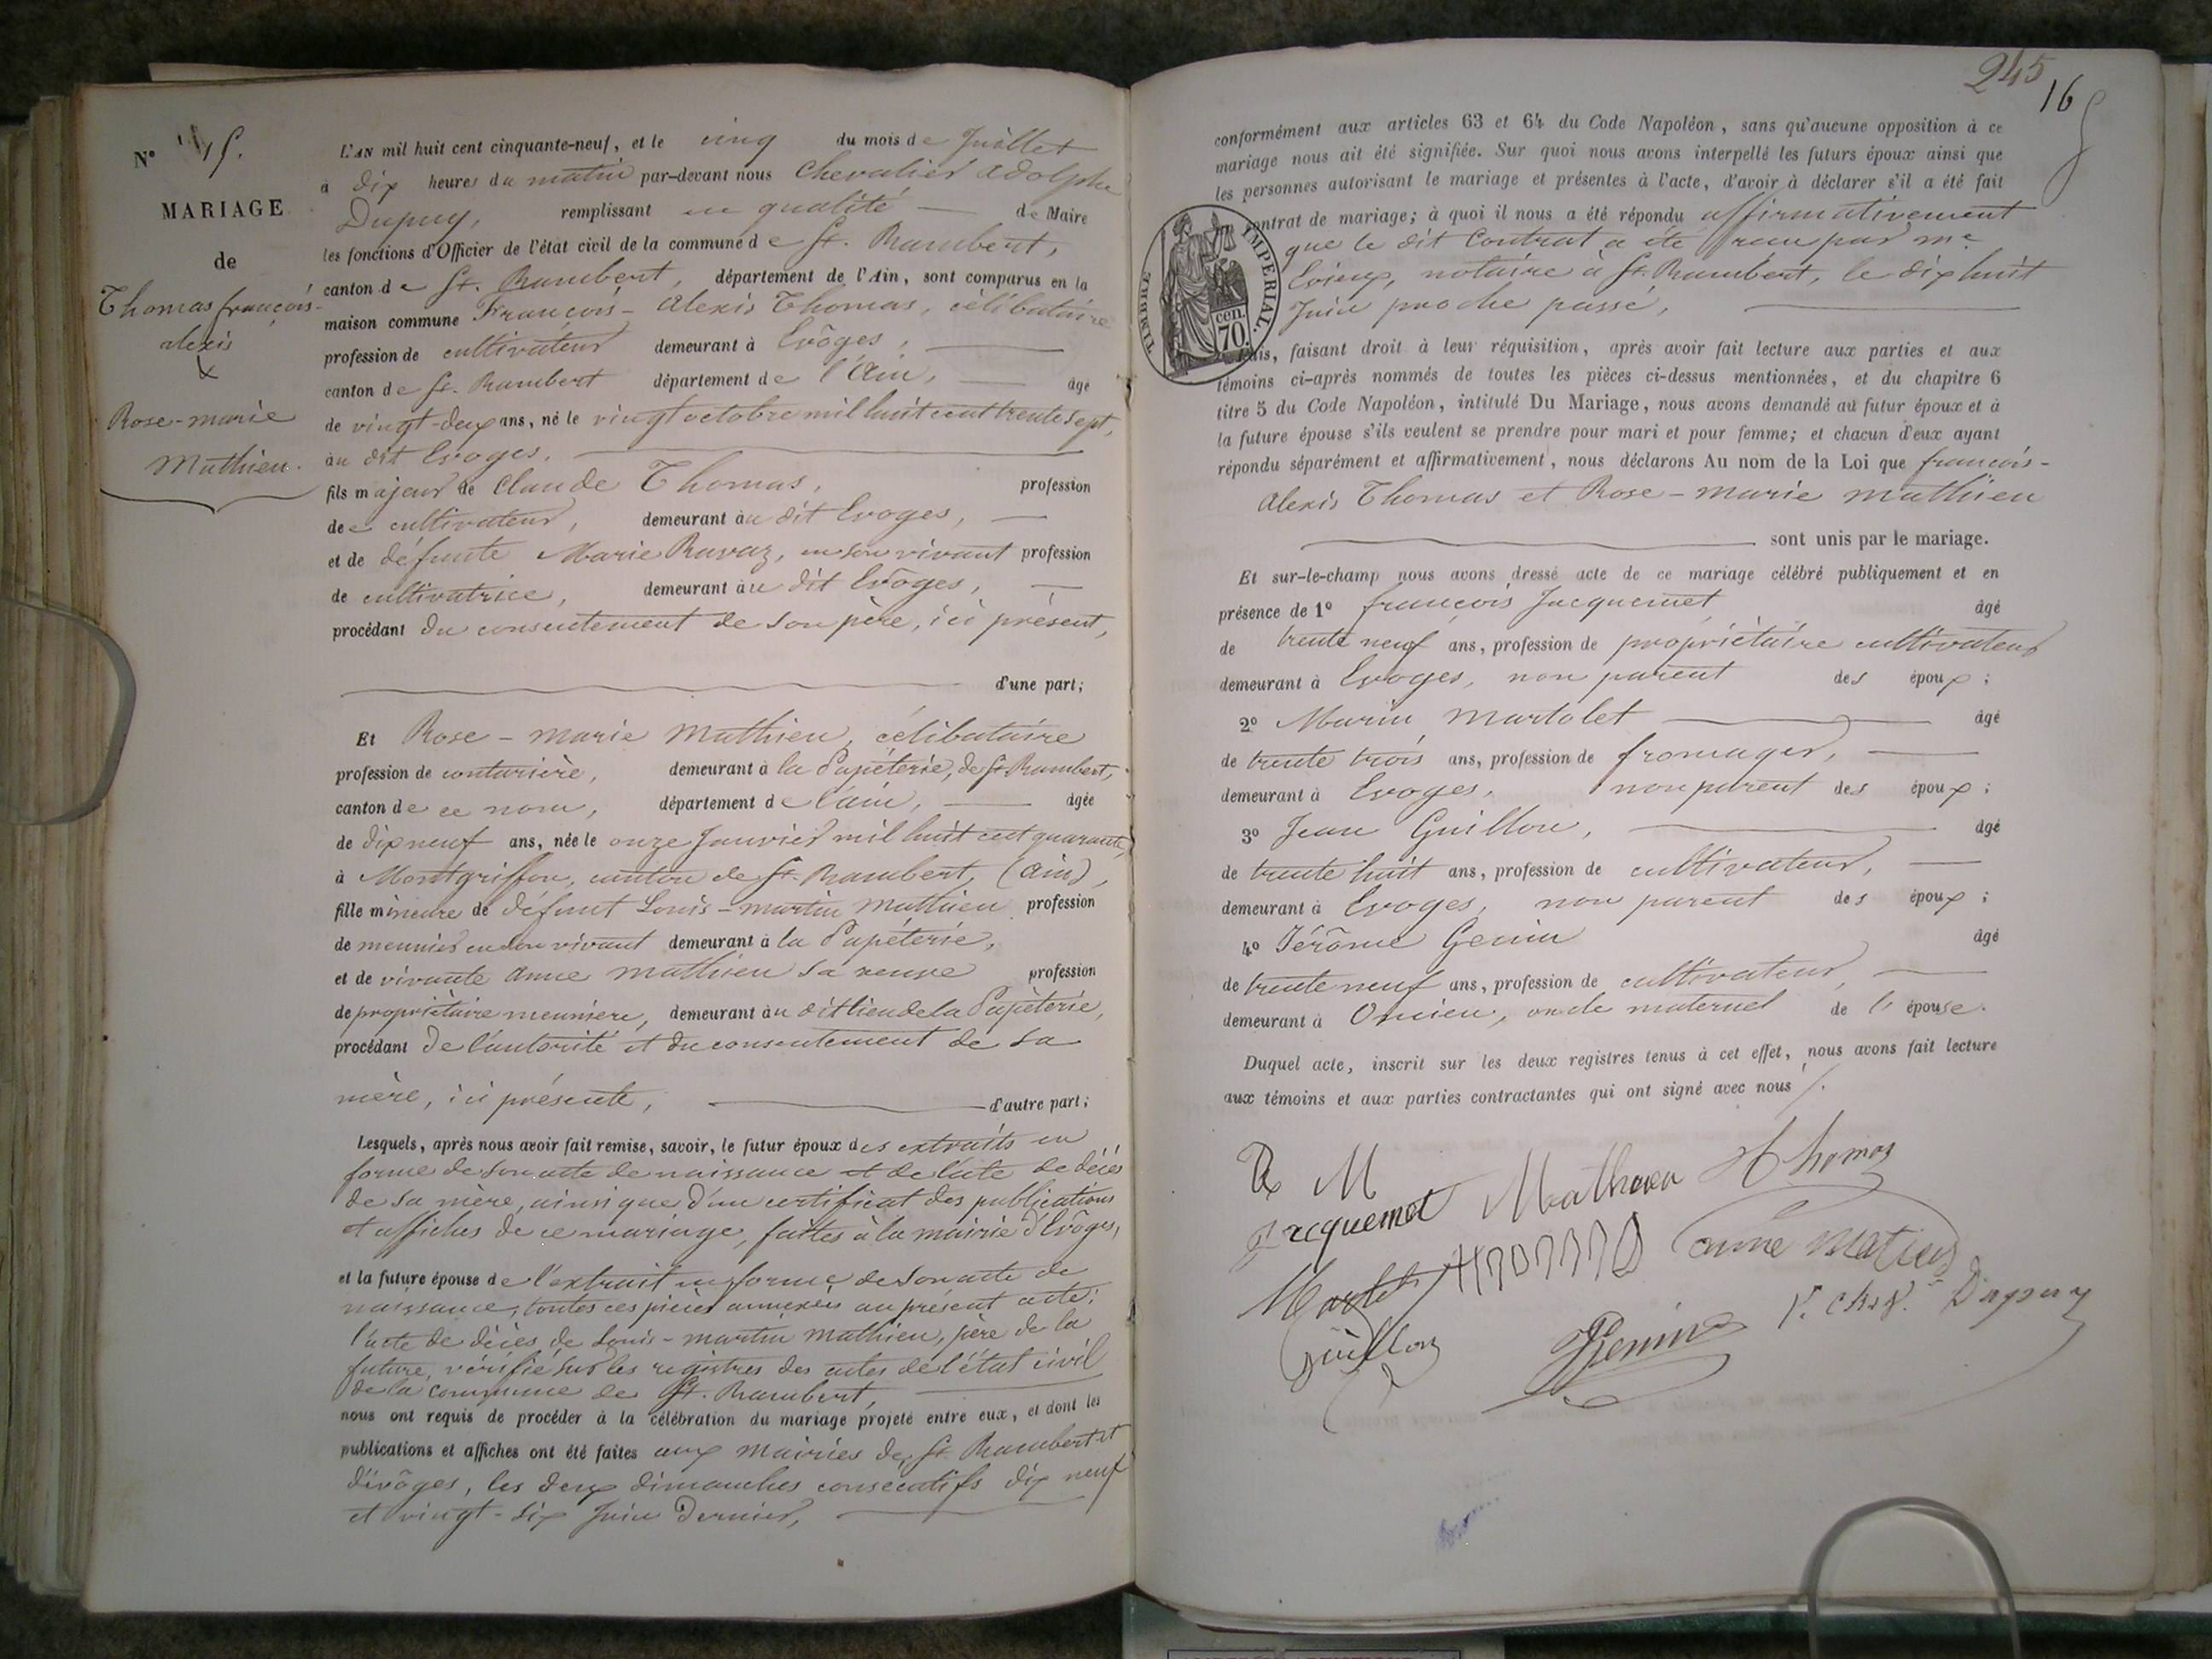 N° 15.
MARIAGE
de
Thomas françois-
alexis
&
Rose-marie
Mathieu.
L'AN mil huit cent cinquante-neuf, et le cinq du mois de Juillet
à dix heures du matin par-devant nous Chevalier Adolphe
Dupuy, remplissant en qualité de Maire
les fonctions d'Officier de l'état civil de la commune de St. Rambert,
canton de St. Rambert, département de l'Ain, sont comparus en la
maison commune François-Alexis Thomas, célibataire
profession de cultivateur demeurant à Evôges,
canton de St. Rambert département de l'Ain, âgé
de vingt-deux ans, né le vingt octobre mil huit cent trente sept,
au dit Evoges.
fils majeur de Claude Thomas, profession
de cultivateur, demeurant au dit Evoges,
et de défunte Marie Ravaz, en son vivant profession
de cultivatrice, demeurant au dit Evôges,
procédant du consentement de son père, ici présent,
d'une part;
Et Rose-marie Mathieu, célibataire
profession de couturière, demeurant à la Papéterie, de St. Rambert,
canton de ce nom, département de l'ain, âgée
de dix neuf ans, née le onze Janvier mil huit cent quarante,
à Montgriffon, canton de St. Rambert, (ain),
fille mineure de défunt Louis-martin Mathieu profession
de meunier en son vivant demeurant à la Papéterie,
et de vivante anne mathieu sa veuve profession
de propriétaire meunière, demeurant au dit lieu de la Papèterie,
procédant de l'autorité et du consentement de sa
mère, ici présente, d'autre part;
Lesquels, après nous avoir fait remise, savoir, le futur époux des extraits en
forme de son acte de naissance et de l'acte de décès
de sa mère, ainsi que d'un certificat des publications
et affiches de ce mariage, faites à la mairie d'Evôges,
et la future épouse de l'extrait en forme de son acte de
naissance, toutes ces pièces annexées au présent acte;
l'acte de décès de Louis-martin mathieu, père de la
future, vérifié sur les registres des actes de l'état civil
de la commune de St. Rambert,
nous ont requis de procéder à la célébration du mariage projeté entre eux, et dont les
publications et affiches ont été faites aux mairies de St. Rambert et
d'évôges, les deux dimanches consécutifs dix neuf
et vingt-six Juin dernier,
245
16
conformément aux articles 63 et 64 du Code Napoléon, sans qu'aucune opposition à ce
mariage nous ait été signifiée. Sur quoi nous avons interpellé les futurs époux ainsi que
les personnes autorisant le mariage et présentes à l'acte, d'avoir à déclarer s'il a été fait
contrat de mariage; à quoi il nous a été répondu affirmativement
que le dit Contrat a été reçu par me
notaire à St. Rambert, le dix huit
Juin proche passé,
TIMBRE IMPÉRIAL.
70 cen.
Puis, faisant droit à leur réquisition, après avoir fait lecture aux parties et aux
témoins ci-après nommés de toutes les pièces ci-dessus mentionnées, et du chapitre 6
titre 5 du Code Napoléon, intitulé Du Mariage, nous avons demandé au futur époux et à
la future épouse s'ils veulent se prendre pour mari et pour femme; et chacun d'eux ayant
répondu séparément et affirmativement, nous déclarons Au nom de la Loi que françois-
Alexis Thomas et Rose-marie mathieu
sont unis par le mariage.
Et sur-le-champ nous avons dressé acte de ce mariage célébré publiquement et en
présence de 1° françois Jacquemet âgé
de trente neuf ans, profession de propriétaire cultivateur
demeurant à Evoges, non parent des époux;
2° Marin Martolet âgé
de trente trois ans, profession de fromager,
demeurant à Evoges, non parent des époux;
3° Jean Guillon, âgé
de trente huit ans, profession de cultivateur,
demeurant à Evoges, non parent des époux;
4° Jérôme Genin âgé
de trente neuf ans, profession de cultivateur,
demeurant à Oncieu, oncle maternel de l'épouse.
Duquel acte, inscrit sur les deux registres tenus à cet effet, nous avons fait lecture
aux témoins et aux parties contractantes qui ont signé avec nous /.
R M Mathieu Thomas
Jacquemet
anne Matieu
Martolet
Guillon Genin Dupuy